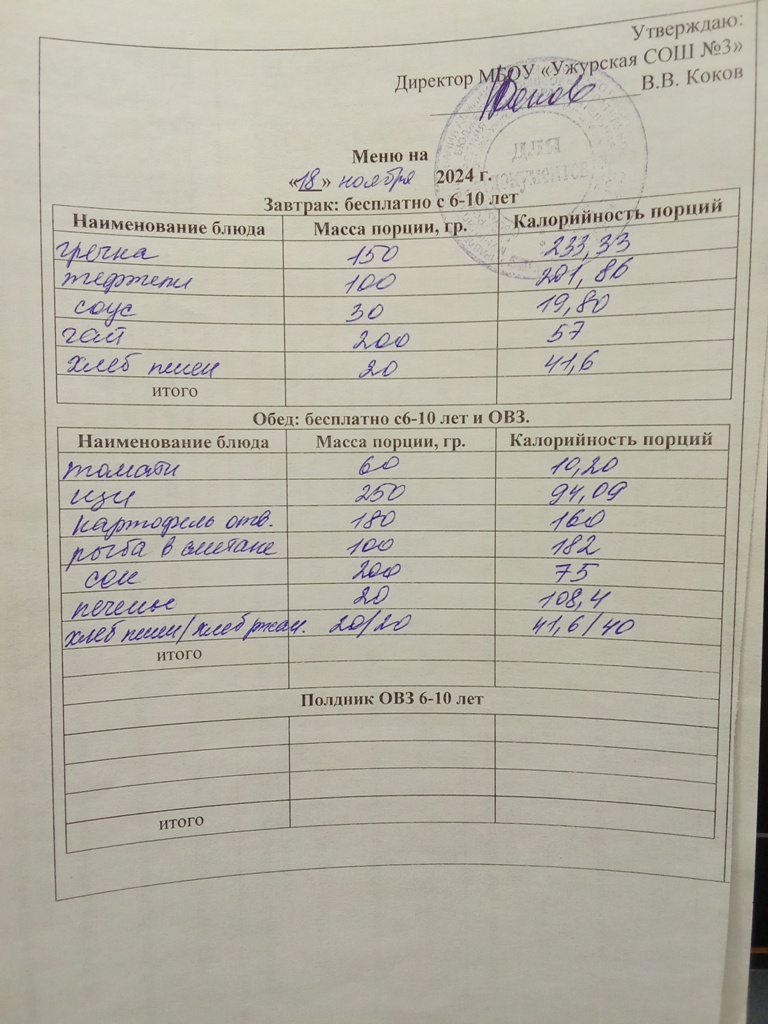 Утверждаю:
Директор МБОУ «Ужурская СОШ №3»
В.В. Коков
Меню на
«18» ноября 2024 г.
Завтрак: бесплатно с 6-10 лет
Наименование блюда Масса порции, гр. Калорийность порций
гречка 150 233,33
тефтели 100 201,86
соус 30 19,80
чай 200 57
хлеб пшен 20 41,6
итого
Обед: бесплатно с6-10 лет и ОВЗ.
Наименование блюда Масса порции, гр. Калорийность порций
томаты 60 10,20
щи 250 94,09
картофель отв. 180 160
рыба в сметане 100 182
сок 200 75
печенье 20 108,4
хлеб пшен/хлеб ржан. 20/20 41,6/40
итого
Полдник ОВЗ 6-10 лет
итого